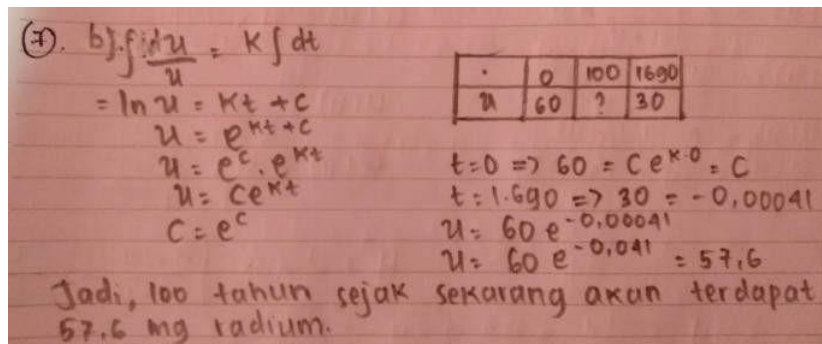 (7). b). ∫ du/u = K ∫ dt
= ln u = Kt + c
u = e^Kt+c
u = e^c . e^Kt
u = ce^Kt
C = e^c
. | 0 | 100 | 1690
u | 60 | ? | 30
t = 0 => 60 = C e^K.0 = C
t = 1.690 => 30 = -0,00041
u = 60 e^-0,00041
u = 60 e^-0,041 = 57,6
Jadi, 100 tahun sejak sekarang akan terdapat
57,6 mg radium.